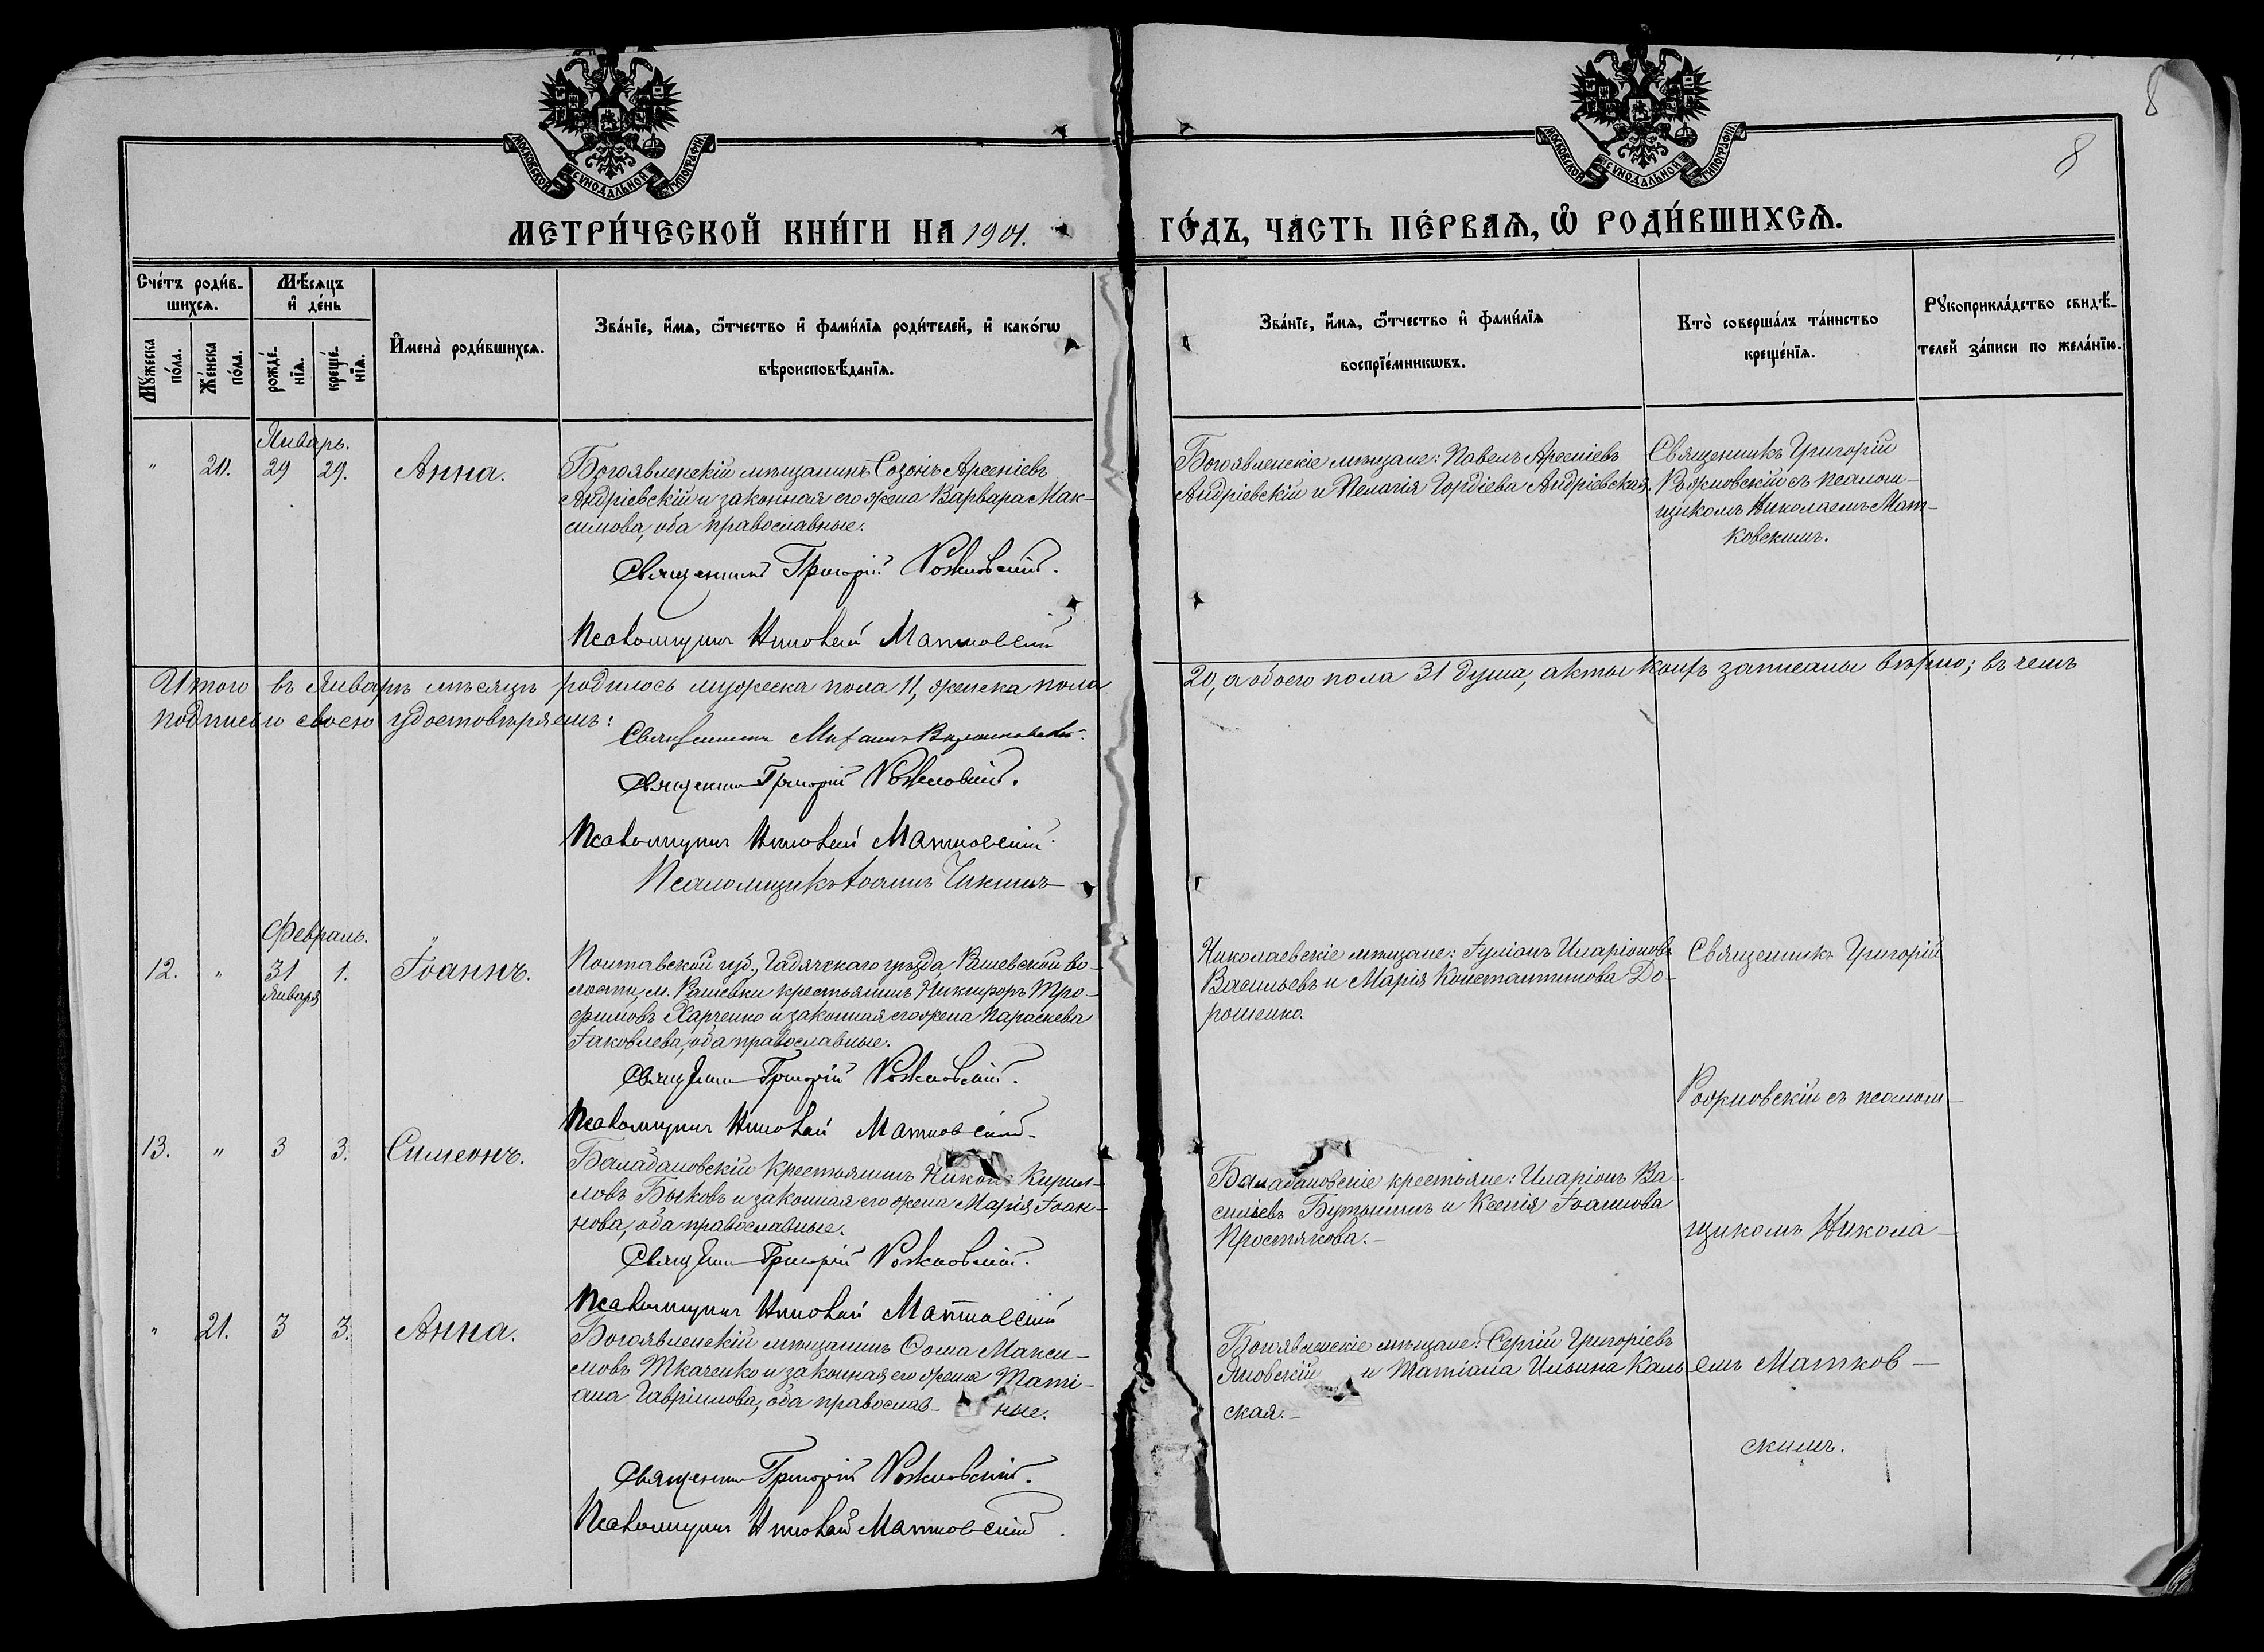 8
8
МОСКОВСКОЙ СѴНОДАЛЬНОЙ ТИПОГРАФІИ
МОСКОВСКОЙ СѴНОДАЛЬНОЙ ТИПОГРАФІИ
МЕТРИ́ЧЕСКОЙ КНИ́ГИ НА 1901.
ГО́ДЪ, ЧА́СТЬ ПЕ́РВАѦ, Ѿ РОДИ́ВШИХСѦ.
Сче́тъ роди́в-
шихсѧ.
Мѣ́сѧцъ
и҆ де́нь
Мꙋ́жеска
по́ла.
Же́нска
по́ла.
рожде́-
нїѧ.
креще́-
нїѧ.
И҆мена̀ роди́вшихсѧ.
Зва́нїе, и҆́мѧ, ѻ҆́тчество и҆ фами́лїѧ роди́телей, и҆ како́гѡ
вѣроисповѣ́данїѧ.
Зва́нїе, и҆́мѧ, ѻ҆́тчество и҆ фами́лїѧ
воспрїе́мникѡвъ.
Кто̀ соверша́лъ та́инство
креще́нїѧ.
Рꙋкоприкла́дство свидѣ́-
телей за́писи по жела́нїю.
Январь.
" 20. 29 29. Анна.
Богоявленскій мѣщанинъ Созонъ Арсеніевъ
Андріевскій и законная его жена Варвара Мак-
симова, оба православные.
Священникъ Григорій Рожновскій.
Псаломщикъ Николай Матковскій
Богоявленскіе мѣщане: Павелъ Арсеніевъ
Андріевскій и Пелагія Гордіева Андріевская.
Священникъ Григорій
Рожновскій съ псалом-
щикомъ Николаемъ Мат-
ковскимъ.
Итого въ Январѣ мѣсяцѣ родилось мужеска пола 11, женска пола
20, а обоего пола 31 душа, акты коихъ записаны вѣрно; въ чемъ
подписью своею удостовѣряемъ:
Священникъ Михаилъ
Священникъ Григорій Рожновскій.
Псаломщикъ Николай Матковскій.
Псаломщикъ Іоаннъ Чикинъ
Февраль.
12. " 31 1. Іоаннъ.
Января
Полтавской губ., Гадячскаго уѣзда, Рашевской во-
лости, м. Рашевки крестьянинъ Никифоръ Тро-
фимовъ Харченко и законная его жена Параскева
Іаковлева, оба православные.
Священникъ Григорій Рожновскій.
Псаломщикъ Николай Матковскій.
Николаевскіе мѣщане: Іуліанъ Иларіоновъ
Васильевъ и Марія Константинова До-
рошенко.
Священникъ Григорій
Рожновскій съ псалом-
13. " 3 3. Симеонъ.
Баладановскій крестьянинъ Никонъ Кирил-
ловъ Бычковъ и законная его жена Марія Іоан-
нова, оба православные.
Священникъ Григорій Рожновскій.
Псаломщикъ Николай Матковскій
Баладановскіе крестьяне: Иларіонъ Ва-
сильевъ Бутынинъ и Ксенія Іоаннова
Простякова.-
щикомъ Никола-
" 21. 3 3. Анна.
Богоявленскій мѣщанинъ Ѳома Макси-
мовъ Ткаченко и законная его жена Тати-
ана Гавріилова, оба православ- ные.
Священникъ Григорій Рожновскій.
Псаломщикъ Николай Матковскій
Богоявленскіе мѣщане: Сергій Григоріевъ
Яновскій и Татіана Ильина Каль
ская.-
емъ Матков-
скимъ.